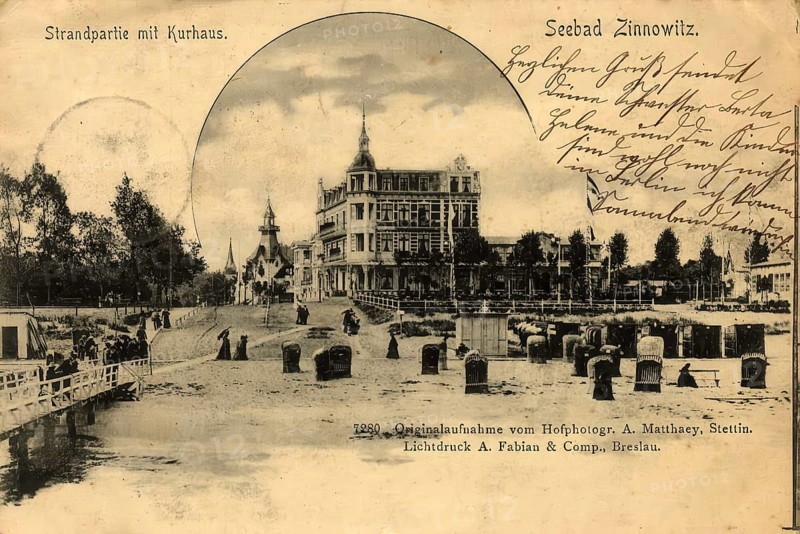 Strandpartie mit Kurhaus.
Seebad Zinnowitz.
Herzlichen Gruß sendet
deine Schwester Berta
Helene und die Kinder
sind wohl noch nicht
in Berlin ich komme
Sonnabend
7280 Originalaufnahme vom Hofphotogr. A. Matthaey, Stettin.
Lichtdruck A. Fabian & Comp., Breslau.